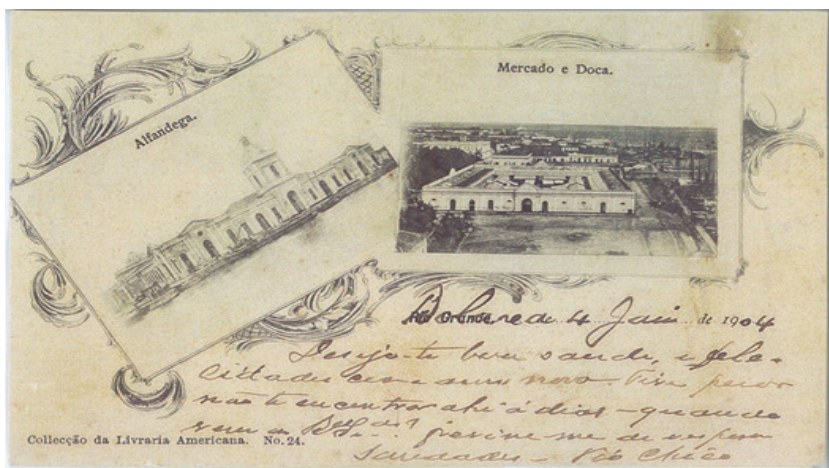 Alfandega.
Mercado e Doca.
Rio Grande, de 4 Jan. de 1904
Desejo-te boa saude, e feli-
cidades com o anno novo. Tive pezar
não te encontrar ahi á dias - quando
vem a previne-me de vespera
Saudades - Tio Chico
Collecção da Livraria Americana. No. 24.